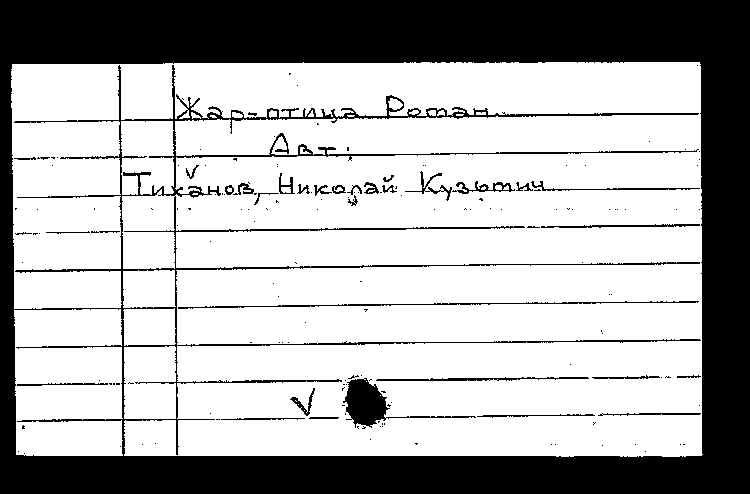 Жар-птица Роман.
Авт.:
Тиханов, Николай Кузьмич
V